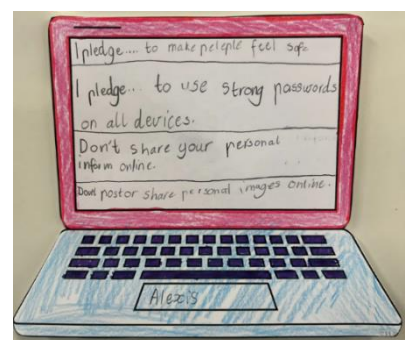 I pledge.... to make peleple feel safe.
I pledge... to use strong passwords
on all devices.
Don't share your personal
inform online.
Dont post or share personal images online.
Alexis